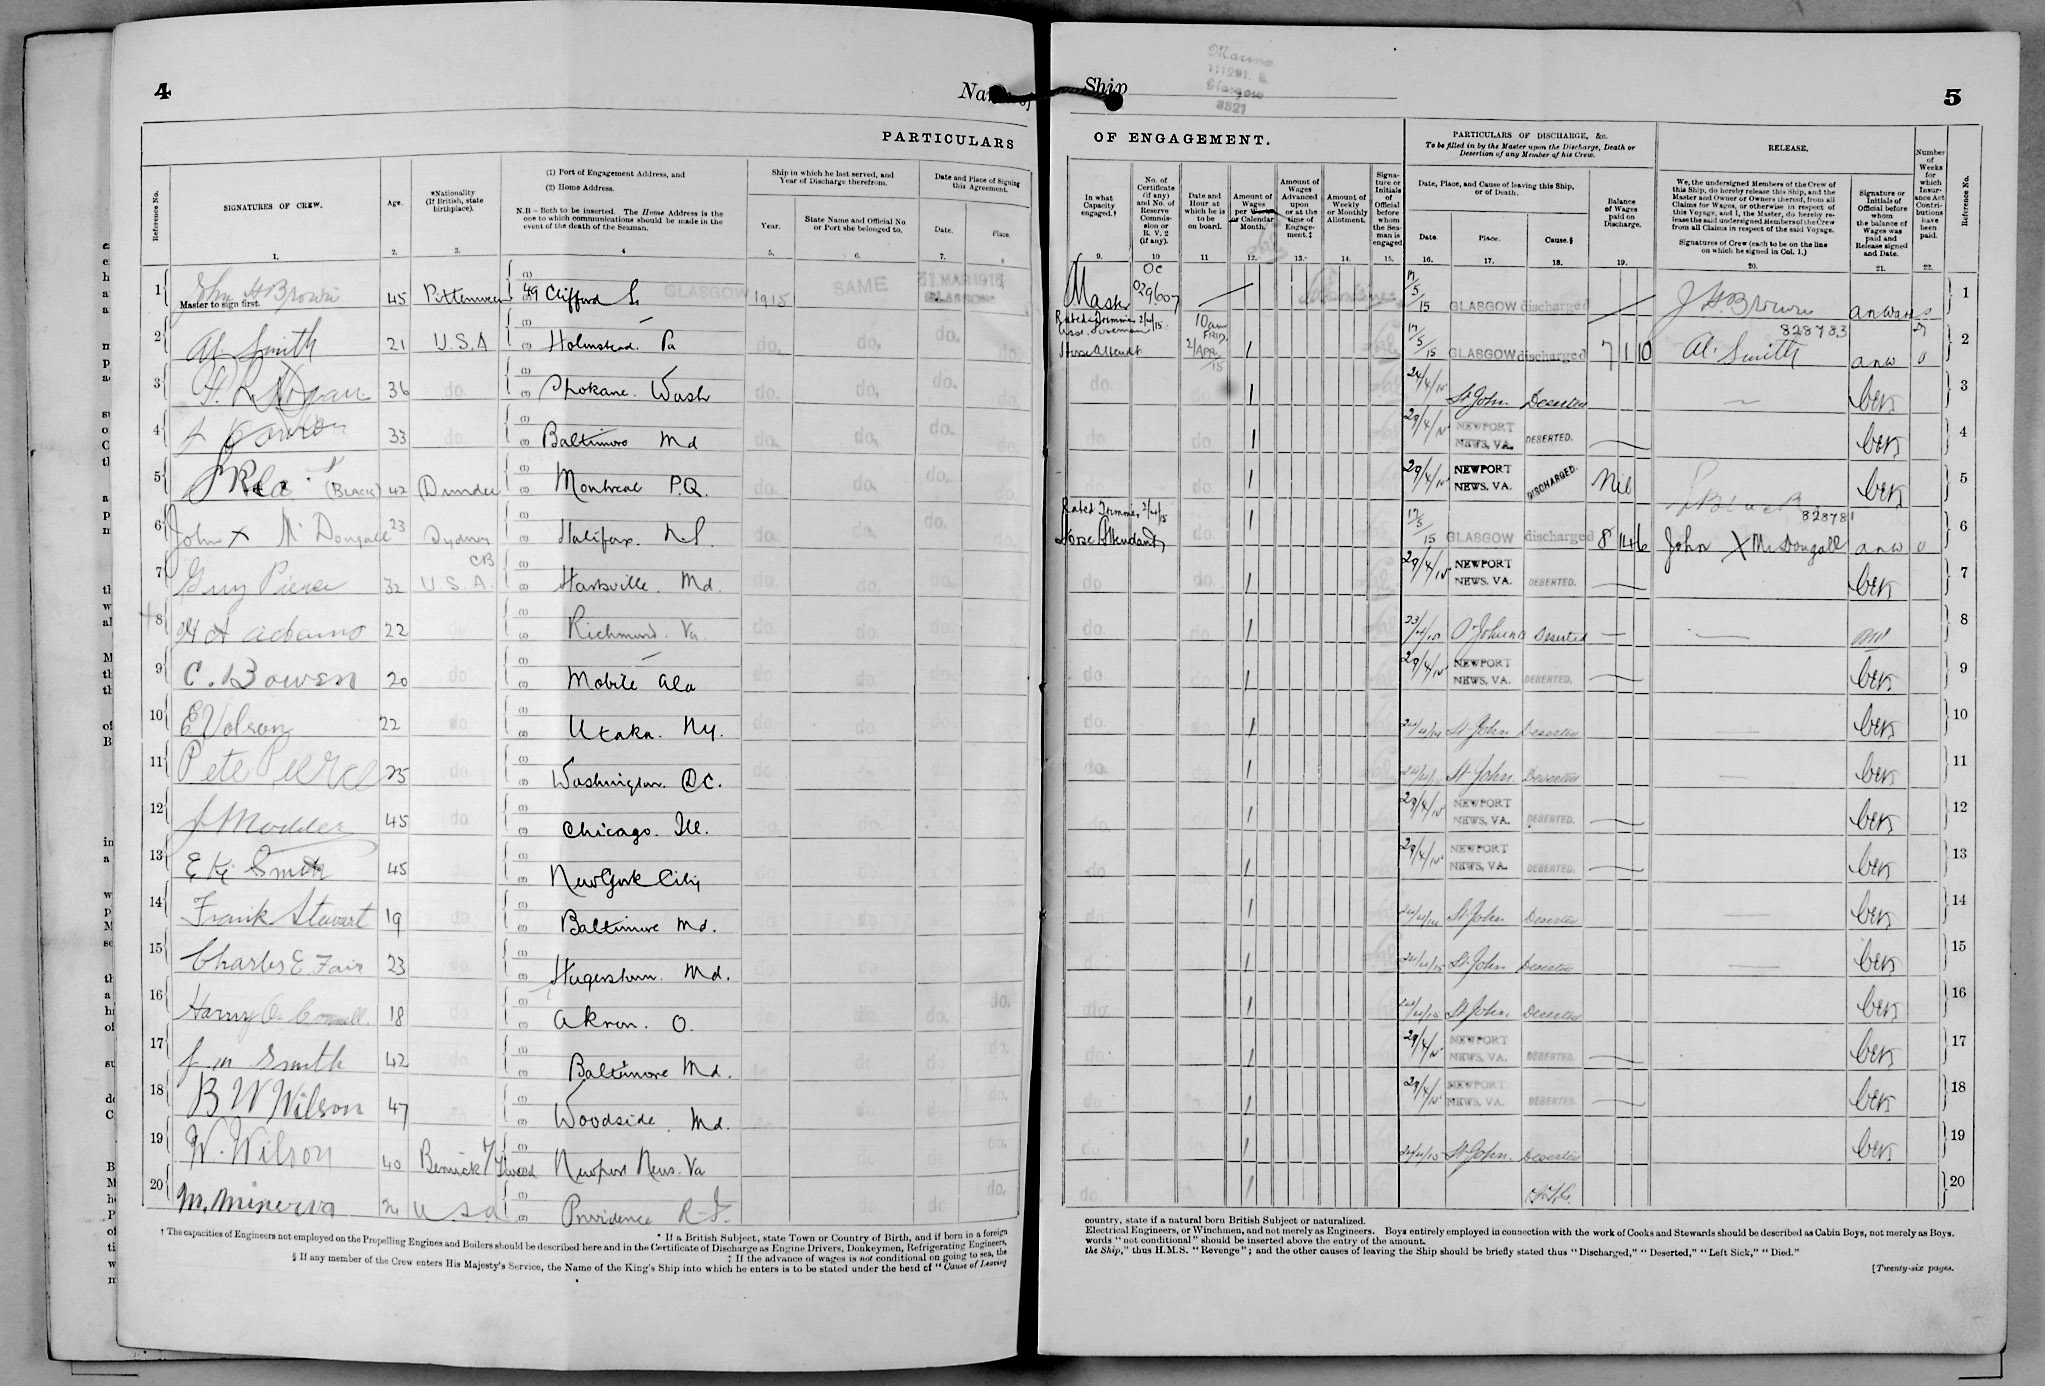 4
Name of
PARTICULARS
Reference No.
SIGNATURES OF CREW.
Age.
*Nationality
(If British, state
birthplace).
(1) Port of Engagement Address, and
(2) Home Address.
N.B—Both to be inserted. The Home Address is the
one to which communications should be made in the
event of the death of the Seaman.
Ship in which he last served, and
Year of Discharge therefrom.
Year.
State Name and Official No
or Port she belonged to.
Date and Place of Signing
this Agreement.
Date.
Place.
1. 2. 3. 4 5. 6. 7. 8
1 John H Brown 45 Pittenweem 49 Clifford St. GLASGOW 1915 SAME 31 MAR 1915 GLASGOW
Master to sign first.
2 Al Smith 21 U.S.A Holmstead. Pa do. do. do. do.
3 36 do. Spokane. Wash do. do. do. do.
4 33 do. Baltimore Md do. do. do. do.
5 (BLACK) 42 Dundee Montreal P.Q. do. do. do. do.
6 John X McDongall 23 Sydney CB Halifax. N.S. do. do. do.
7 Guy Pierce 32 U.S.A. Harksville. Md. do. do. do. do.
8 H A Adams 22 do. Richmond. Va. do. do. do. do.
9 C. Bowen 20 do Mobile Ala do. do. do. do.
10 E Volson 22 do. Utaka. Ny. do. do. do. do.
11 Pete Pierce 25 do. Washington. D.C. do do. do. do.
12 45 do. Chicago. Ill. do. do. do.
13 E K Smith 45 New York City
14 Frank Stewart 19 do. Baltimore Md.
15 Charles E. Fair 23 Hagerstown. Md.
16 Harry O. Connell. 18 do. Akron. O. do. do. do. do.
17 J. M Smith 42 do. Baltimore Md. do. do. do. do.
18 B W Wilson 47 do. Woodside. Md. do. do. do. do.
19 W. Wilson 40 Berwick / Tweed Newport News. Va do do do.
20 M. Minerva U.S.A Providence R.I. do do do.
* If a British Subject, state Town or Country of Birth, and if born in a foreign
† The capacities of Engineers not employed on the Propelling Engines and Boilers should be described here and in the Certificate of Discharge as Engine Drivers, Donkeymen, Refrigerating Engineers,
‡ If the advance of wages is not conditional on going to sea, the
§ If any member of the Crew enters His Majesty's Service, the Name of the King's Ship into which he enters is to be stated under the head of "Cause of Leaving
Ship
Glasgow
5
OF ENGAGEMENT.
PARTICULARS OF DISCHARGE, &c.
To be filled in by the Master upon the Discharge, Death or
Desertion of any Member of his Crew.
RELEASE.
In what
Capacity
engaged.†
No. of
Certificate
(if any)
and No. of
Reserve
Commis-
sion or
R. V. 2
(if any).
Date and
Hour at
which he is
to be
on board.
Amount of
Wages
per Week
or Calendar
Month.
Amount of
Wages
Advanced
upon
or at the
time of
Engage-
ment.‡
Amount of
Weekly
or Monthly
Allotment.
Signa-
ture or
Initials
of
Official
before
whom
the Sea-
man is
engaged
Date, Place, and Cause of leaving this Ship,
or of Death.
Date.
Place.
Cause.§
Balance
of Wages
paid on
Discharge.
We, the undersigned Members of the Crew of
this Ship, do hereby release this Ship, and the
Master and Owner or Owners thereof, from all
Claims for Wages, or otherwise in respect of
this Voyage, and I, the Master, do hereby re-
lease the said undersigned Members of the Crew
from all Claims in respect of the said Voyage.
Signatures of Crew (each to be on the line
on which he signed in Col. 1.)
Signature or
Initials of
Official before
whom
the balance of
Wages was
paid and
Release signed
and Date.
Number
of
Weeks
for
which
Insur-
ance Act
Contri-
butions
have
been
paid.
Reference No.
9. 10 11 12. 13. 14. 15. 16. 17. 18. 19. 20. 21. 22.
Master OC 029607 17/5/15 GLASGOW discharged J H. Brown 1
Rated Trimmer 2/4/15 Horse Attendt 10 am FRID. 2/APR/15 1 17/5/15 GLASGOW discharged 7 1 10 Al. Smith 828783 anw 0 2
do. do. 1 24/4/15 St John Deserted 3
do. do. 1 29/4/15 NEWPORT NEWS, VA. DESERTED. 4
do. do 1 29/4/15 NEWPORT NEWS, VA. DISCHARGED. Nil 5
Rated Trimmer 2/4/15 Horse Attendant 1 17/5/15 GLASGOW discharged 8 14 6 John X McDongall 828781 anw 0 6
do do. 1 29/4/15 NEWPORT NEWS, VA. DESERTED. 7
do. do. 1 23/4/15 St Johns Deserted 8
do. do. 1 29/4/15 NEWPORT NEWS, VA. DESERTED. 9
do. do. 1 St John Deserted 10
do. do. 1 St John. Deserted 11
do. do. 1 29/4/15 NEWPORT NEWS, VA. DESERTED. 12
do. do. 1 29/4/15 NEWPORT NEWS, VA. DESERTED. 13
do 1 St John Deserted 14
do. 1 24/4/15 St John Deserted 15
do. do. 1 24/4/15 St John. Deserted 16
do. 1 29/4/15 NEWPORT NEWS, VA. DESERTED. 17
do. do. 1 29/4/15 NEWPORT NEWS, VA. DESERTED. 18
do. do. 1 24/4/15 St John. Deserted 19
do. 1 20
country, state if a natural born British Subject or naturalized.
Electrical Engineers, or Winchmen, and not merely as Engineers. Boys entirely employed in connection with the work of Cooks and Stewards should be described as Cabin Boys, not merely as Boys.
words "not conditional" should be inserted above the entry of the amount.
the Ship," thus H.M.S. "Revenge"; and the other causes of leaving the Ship should be briefly stated thus "Discharged," "Deserted," "Left Sick," "Died."
[Twenty-six pages.